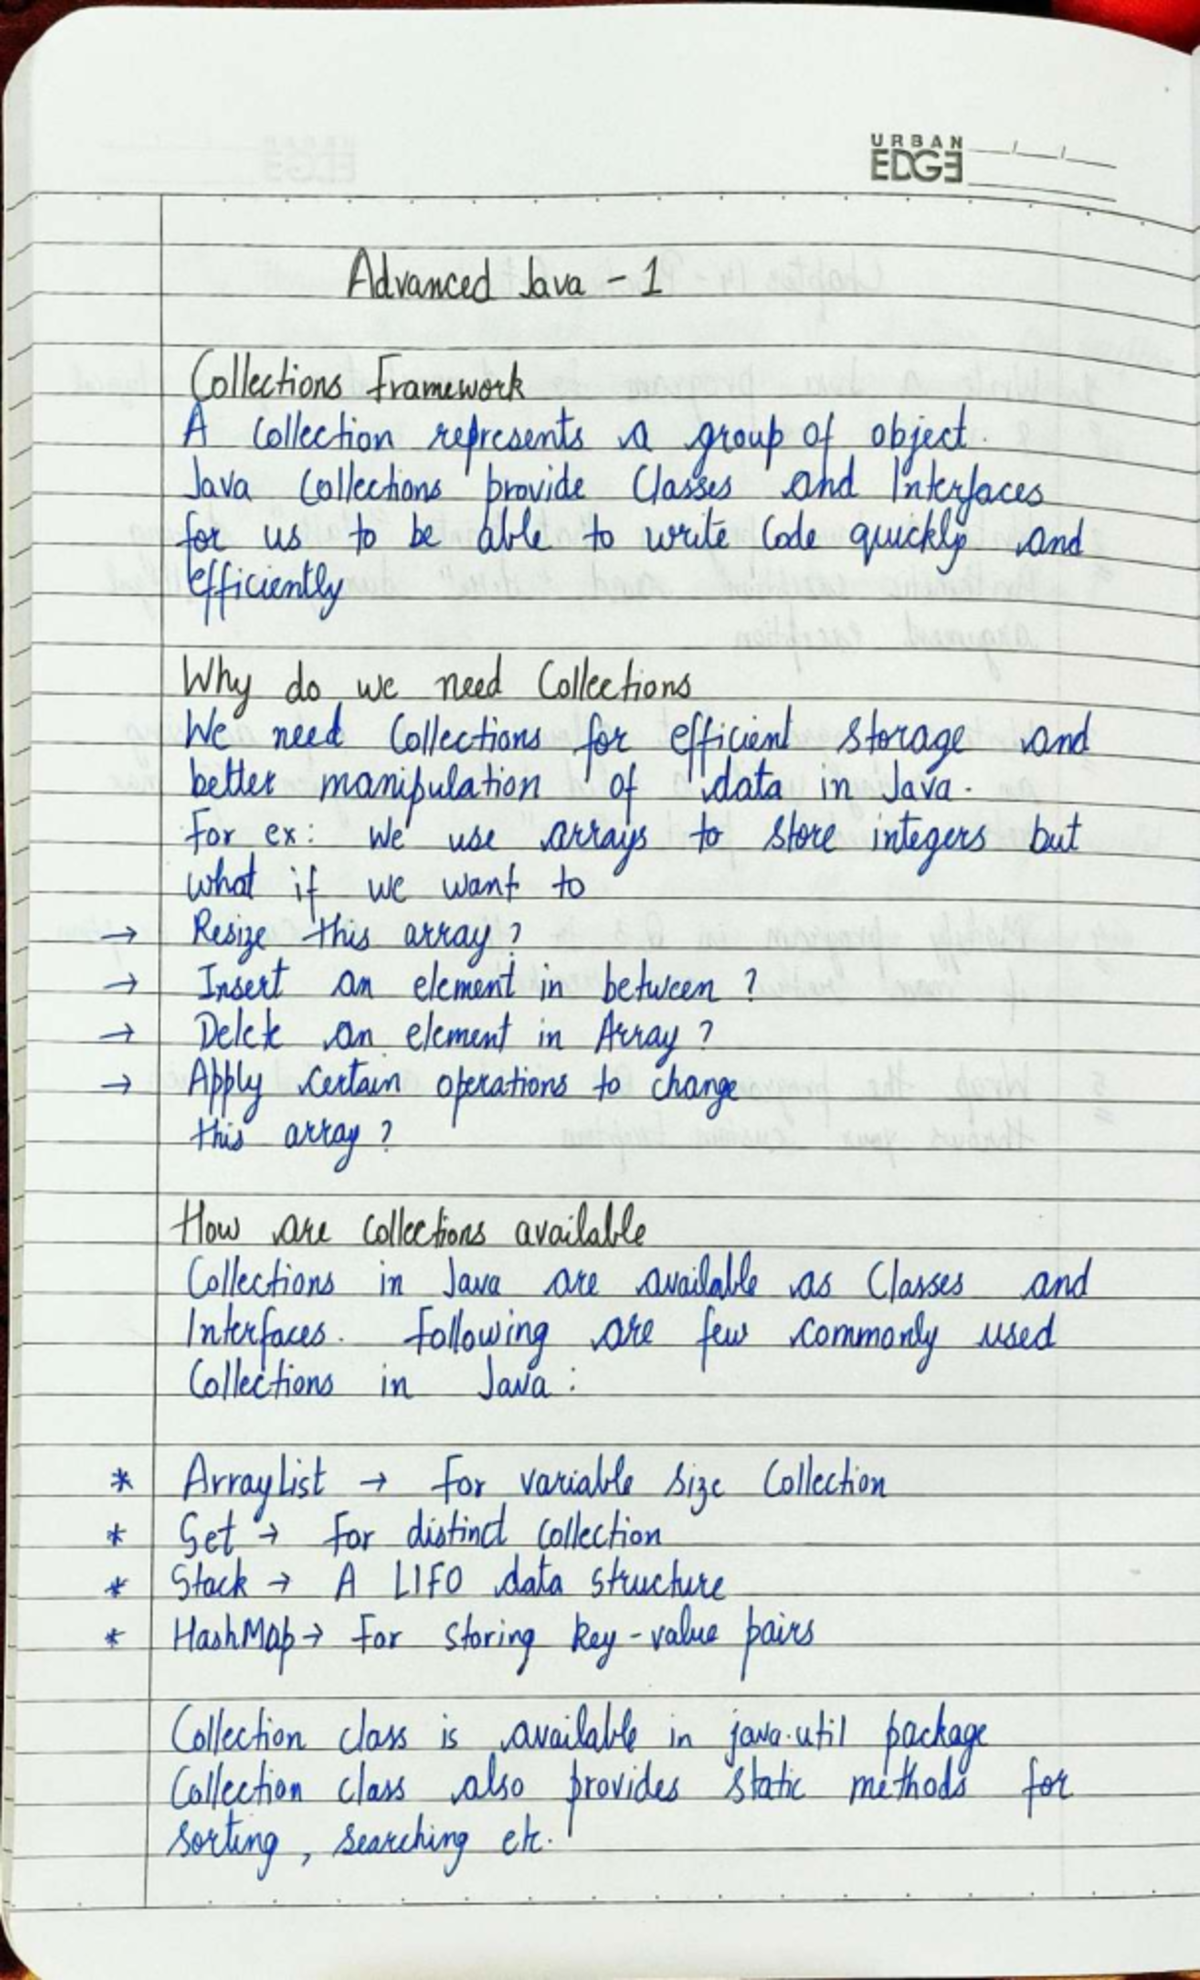 URBAN
EDGE
Advanced Java - 1
Collections Framework
A Collection represents a group of object.
Java Collections provide Classes and Interfaces
for us to be able to write Code quickly and
efficiently
Why do we need Collections
We need Collections for efficient storage and
better manipulation of data in Java.
For ex: We use arrays to store integers but
what if we want to
→ Resize this array?
→ Insert an element in between?
→ Delete an element in Array?
→ Apply certain operations to change
this array?
How are Collections available
Collections in Java are available as Classes and
Interfaces. Following are few commonly used
Collections in Java:
* ArrayList → For variable size Collection
* Set → For distinct Collection
* Stack → A LIFO data structure
* HashMap → For storing key-value pairs
Collection class is available in java.util package
Collection class also provides static methods for
sorting, searching etc.